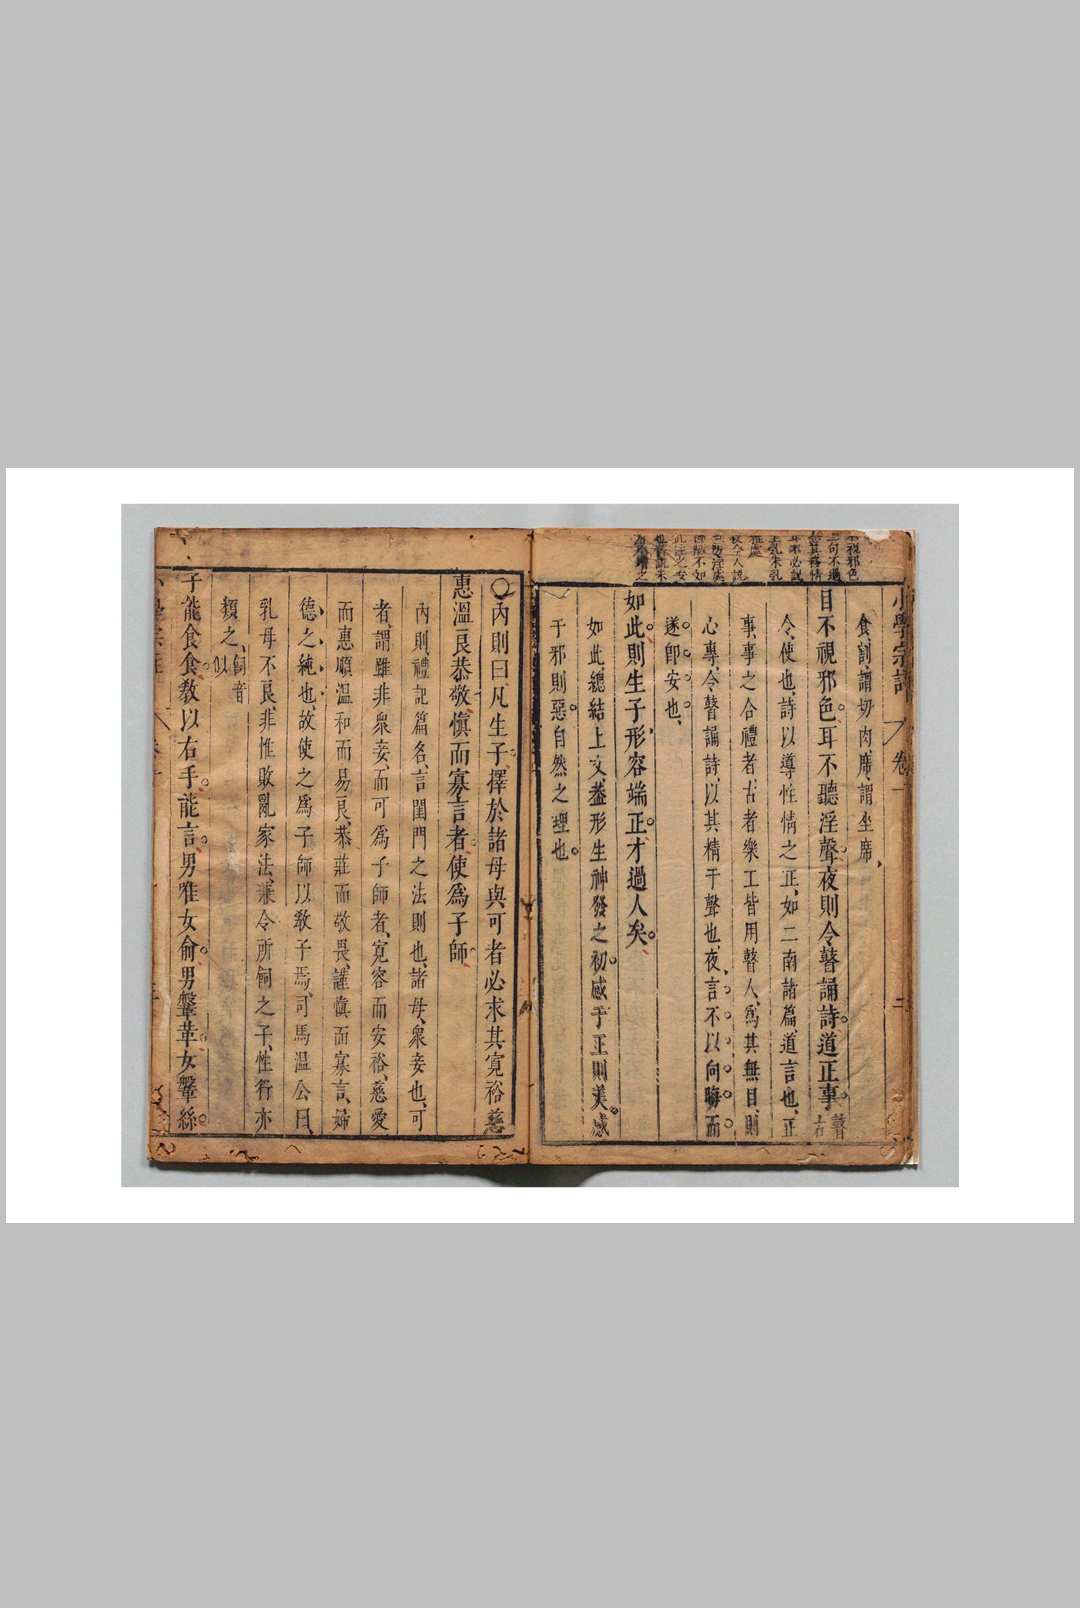 小學宗註 卷一 二
食、割、謂切肉、席、謂坐席、
目不視邪色。耳不聽淫聲。夜則令瞽誦詩。道正事。瞽音古
令、使也、詩以導性情之正、如二南諸篇道言也、正
事、事之合禮者、古者樂工皆用瞽人、爲其無目、則
心專、令瞽誦詩、以其精于聲也、夜、言不以向晦而
遂卽安也、
如此。則生子形容端正。才過人矣。
如此、總結上文、蓋形生神發之初。感于正則美。感
于邪則惡。自然之理也。
〇內則曰、凡生子、擇於諸母與可者必求其寬裕慈
惠溫良恭敬愼而寡言者、使爲子師、
內則、禮記篇名、言閨門之法則也、諸母、衆妾也、可
者、謂雖非衆妾、而可爲子師者、寬容而安裕、慈愛
而惠順溫和而易良、恭莊而敬畏、謹愼而寡言、婦
德之純也、故使之爲子師以敎子焉、司馬溫公曰、
乳母不良非惟敗亂家法、兼令所飼之子、性行亦
類之、飼音似
子能食食。敎以右手。能言。男唯女俞。男鞶革。女鞶絲。